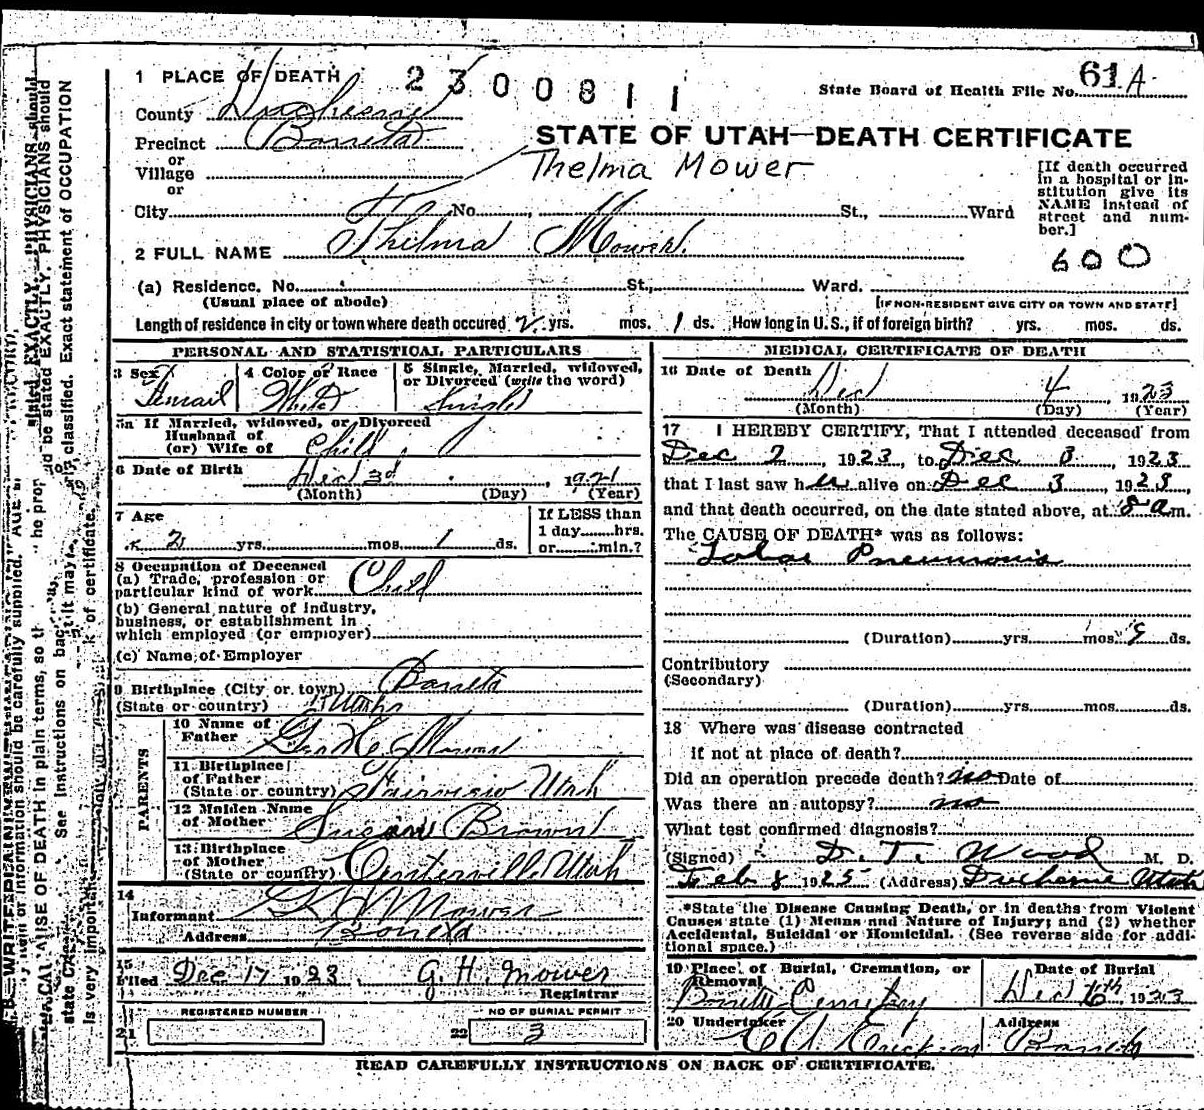 1 PLACE OF DEATH 2300811
State Board of Health File No. 61 A
County Duchesne
Precinct Boneta
STATE OF UTAH—DEATH CERTIFICATE
or
Village
Thelma Mower
or
City No. St., Ward
[If death occurred in a hospital or in-
stitution give its
NAME instead of
street and num-
ber.]
2 FULL NAME Thelma Mower.
600
(a) Residence. No. St., Ward.
(Usual place of abode) [IF NON-RESIDENT GIVE CITY OR TOWN AND STATE]
Length of residence in city or town where death occured 2 yrs. mos. 1 ds. How long in U. S., if of foreign birth? yrs. mos. ds.
PERSONAL AND STATISTICAL PARTICULARS
3 Sex Femail
4 Color or Race White
5 Single, Married, widowed,
or Divorced (write the word)
Single
5a If Married, widowed, or Divorced
Husband of
(or) Wife of Child
6 Date of Birth Dec 3d, 1921
(Month) (Day) (Year)
7 Age
2 yrs. mos. 1 ds.
If LESS than
1 day hrs.
or min.?
8 Occupation of Deceased
(a) Trade, profession or
particular kind of work Child
(b) General nature of industry,
business, or establishment in
which employed (or employer)
(c) Name of Employer
9 Birthplace (City or town) Boneta
(State or country) Utah
PARENTS
10 Name of
Father Geo H. Mower
11 Birthplace
of Father
(State or country) Fairview Utah
12 Maiden Name
of Mother Susan Brown
13 Birthplace
of Mother
(State or country) Centerville Utah
14
Informant G H Mower
Address Boneta
15
Filed Dec 17 1923, G. H. Mower
Registrar
REGISTERED NUMBER
21
NO OF BURIAL PERMIT
22 3
MEDICAL CERTIFICATE OF DEATH
16 Date of Death
Dec 4, 1923
(Month) (Day) (Year)
17 I HEREBY CERTIFY, That I attended deceased from
Dec 2, 1923, to Dec 3, 1923
that I last saw her alive on Dec 3, 1923,
and that death occurred, on the date stated above, at 8 a m.
The CAUSE OF DEATH* was as follows:
Lobar Pneumonia
(Duration) yrs. mos. 9 ds.
Contributory
(Secondary)
(Duration) yrs. mos. ds.
18 Where was disease contracted
if not at place of death?
Did an operation precede death? no Date of
Was there an autopsy? no
What test confirmed diagnosis?
(Signed) D. T. Wood M. D.
Feb 8 1925 (Address) Duchesne Utah
*State the Disease Causing Death, or in deaths from Violent
Causes state (1) Means and Nature of Injury; and (2) whether
Accidental, Suicidal or Homicidal. (See reverse side for addi-
tional space.)
19 Place of Burial, Cremation, or
Removal
Boneta Cemetery
Date of Burial
Dec 6th, 1923
20 Undertaker
C A Erickson
Address
Boneta
READ CAREFULLY INSTRUCTIONS ON BACK OF CERTIFICATE.